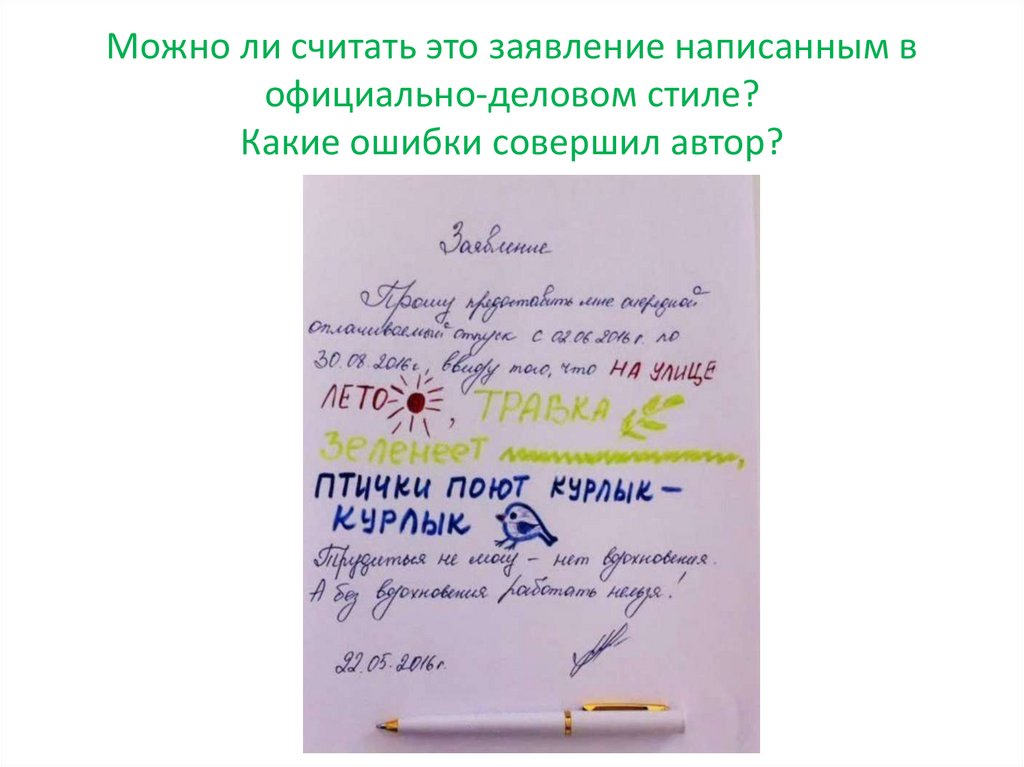 Можно ли считать это заявление написанным в
официально-деловом стиле?
Какие ошибки совершил автор?
Заявление
Прошу предоставить мне очередной
оплачиваемый отпуск с 02.06.2016г. по
30.08.2016г., ввиду того, что НА УЛИЦЕ
ЛЕТО, ТРАВКА
ЗЕЛЕНЕЕТ,
ПТИЧКИ ПОЮТ КУРЛЫК –
КУРЛЫК
Трудиться не могу – нет вдохновения.
А без вдохновения работать нельзя!
22.05.2016г.